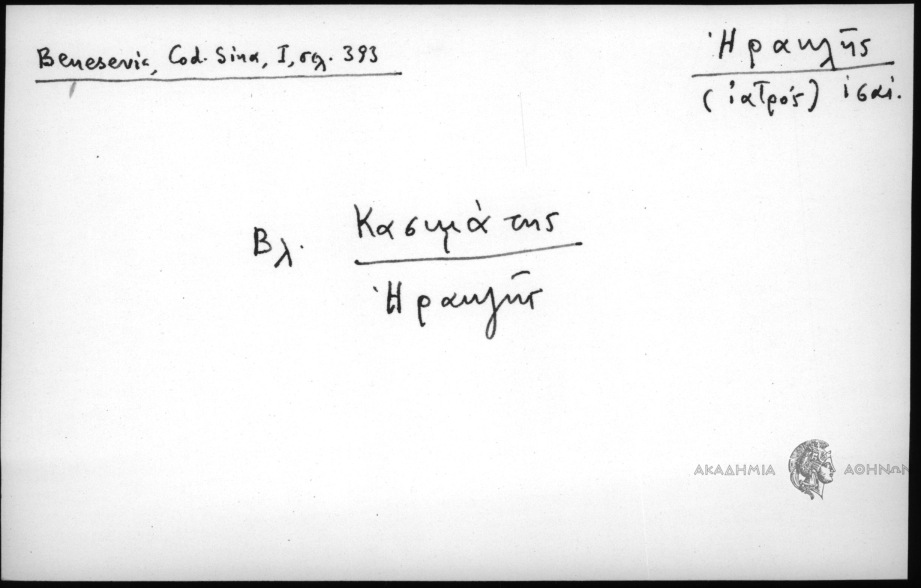 Benesevic, Cod. Sina, I, σελ. 393
Ἡρακλῆς
(ἰατρός) ἰσαί.
Βλ. Κασιμάτης
Ἡρακλῆς
ΑΚΑΔΗΜΙΑ ΑΘΗΝΩΝ